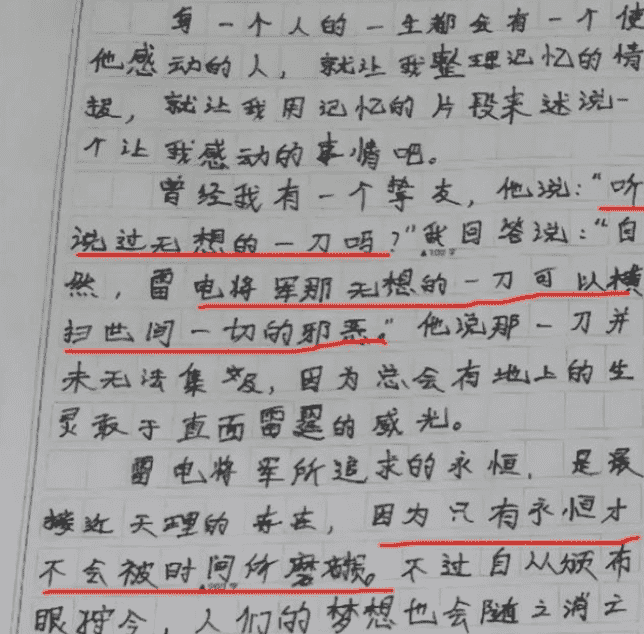 每一个人的一生都会有一个使
他感动的人，就让我整理记忆的情
绪，就让我用记忆的片段来述说一
个让我感动的事情吧。
曾经我有一个挚友，他说：“听
说过无想的一刀吗？”我回答说：“自
▲100字
然，雷电将军那无想的一刀可以横
扫世间一切的邪恶。”他说那一刀并
未无法集及，因为总会有地上的生
灵敢于直面雷霆的威光。
雷电将军所追求的永恒，是最
接近天理的存在，因为只有永恒才
不会被时间所磨损。不过自从颁布
▲200字
眼狩令，人们的梦想也会随之消亡